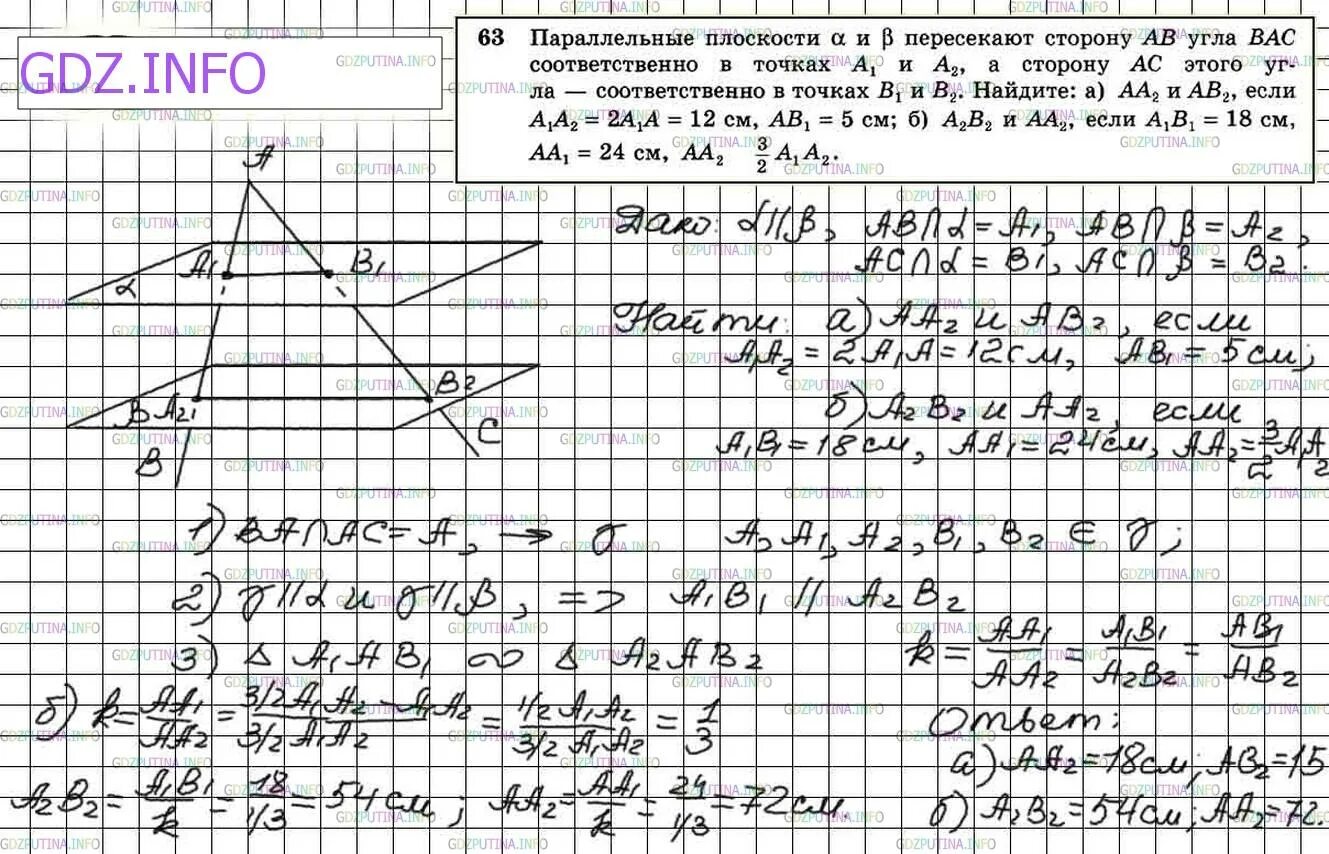 GDZ.INFO
63 Параллельные плоскости α и β пересекают сторону AB угла BAC
соответственно в точках A₁ и A₂, а сторону AC этого уг-
ла — соответственно в точках B₁ и B₂. Найдите: а) AA₂ и AB₂, если
A₁A₂ = 2A₁A = 12 см, AB₁ = 5 см; б) A₂B₂ и AA₂, если A₁B₁ = 18 см,
AA₁ = 24 см, AA₂ 3/2 A₁A₂.
A
A₁
B₁
α
β A₂
B₂
B
C
Дано: α||β, AB∩α = A₁, AB∩β = A₂,
AC∩α = B₁, AC∩β = B₂.
Найти: а) AA₂ и AB₂, если
A₁A₂ = 2A₁A = 12 см, AB₁ = 5 см;
б) A₂B₂ и AA₂, если
A₁B₁ = 18 см, AA₁ = 24 см, AA₂ = 3/2 A₁A₂
1) BA∩AC = A, → γ A, A₁, A₂, B₁, B₂ ∈ γ;
2) γ||α и γ||β, => A₁B₁ || A₂B₂
3) Δ A₁AB₁ ∞ Δ A₂AB₂ k = AA₁/AA₂ = A₁B₁/A₂B₂ = AB₁/AB₂
б) k = AA₁/AA₂ = (3/2 A₁A₂ - A₁A₂)/(3/2 A₁A₂) = (1/2 A₁A₂)/(3/2 A₁A₂) = 1/3
A₂B₂ = A₁B₁/k = 18/(1/3) = 54 см; AA₂ = AA₁/k = 24/(1/3) = 72 см.
Ответ:
а) AA₂ = 18 см; AB₂ = 15
б) A₂B₂ = 54 см; AA₂ = 72.
GDZPUTINA.INFO